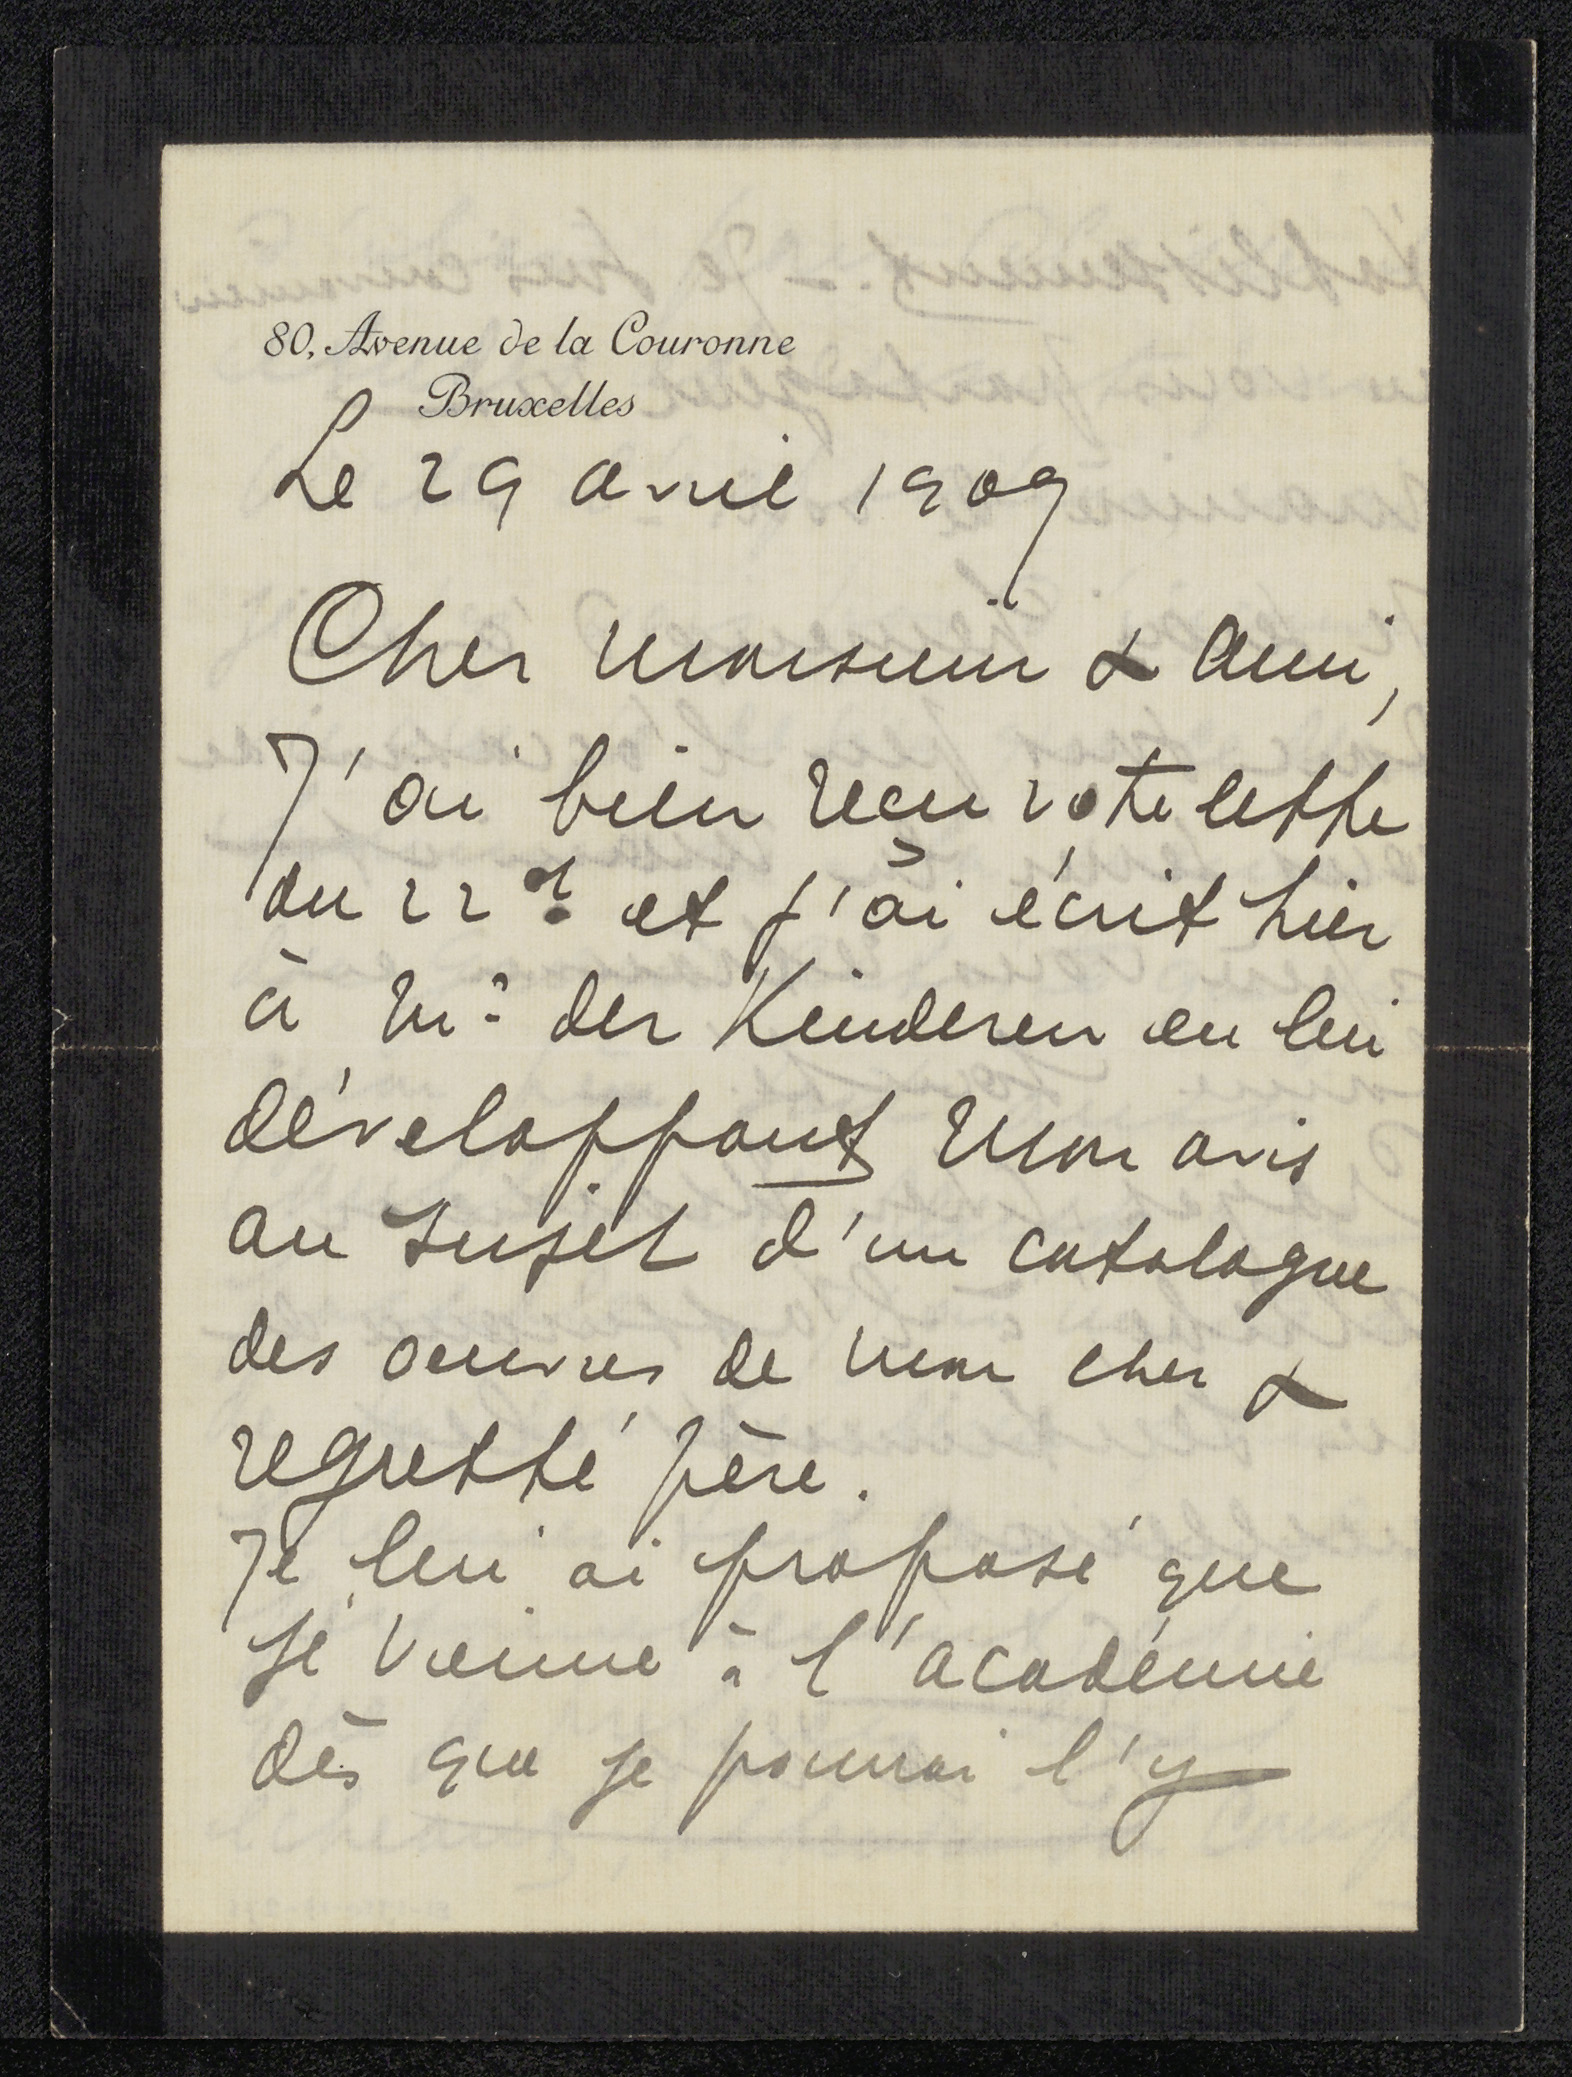 80, Avenue de la Couronne
Bruxelles
Le 29 avril 1909
Cher Monsieur & Ami,
J'ai bien reçu votre lettre
du 22 ct et j'ai écrit hier
à Mr der Kinderen en lui
développant mon avis
au sujet d'un catalogue
des oeuvres de mon cher &
regretté père.
Je lui ai proposé que
je vienne à l'académie
dès que je pourrai l'y